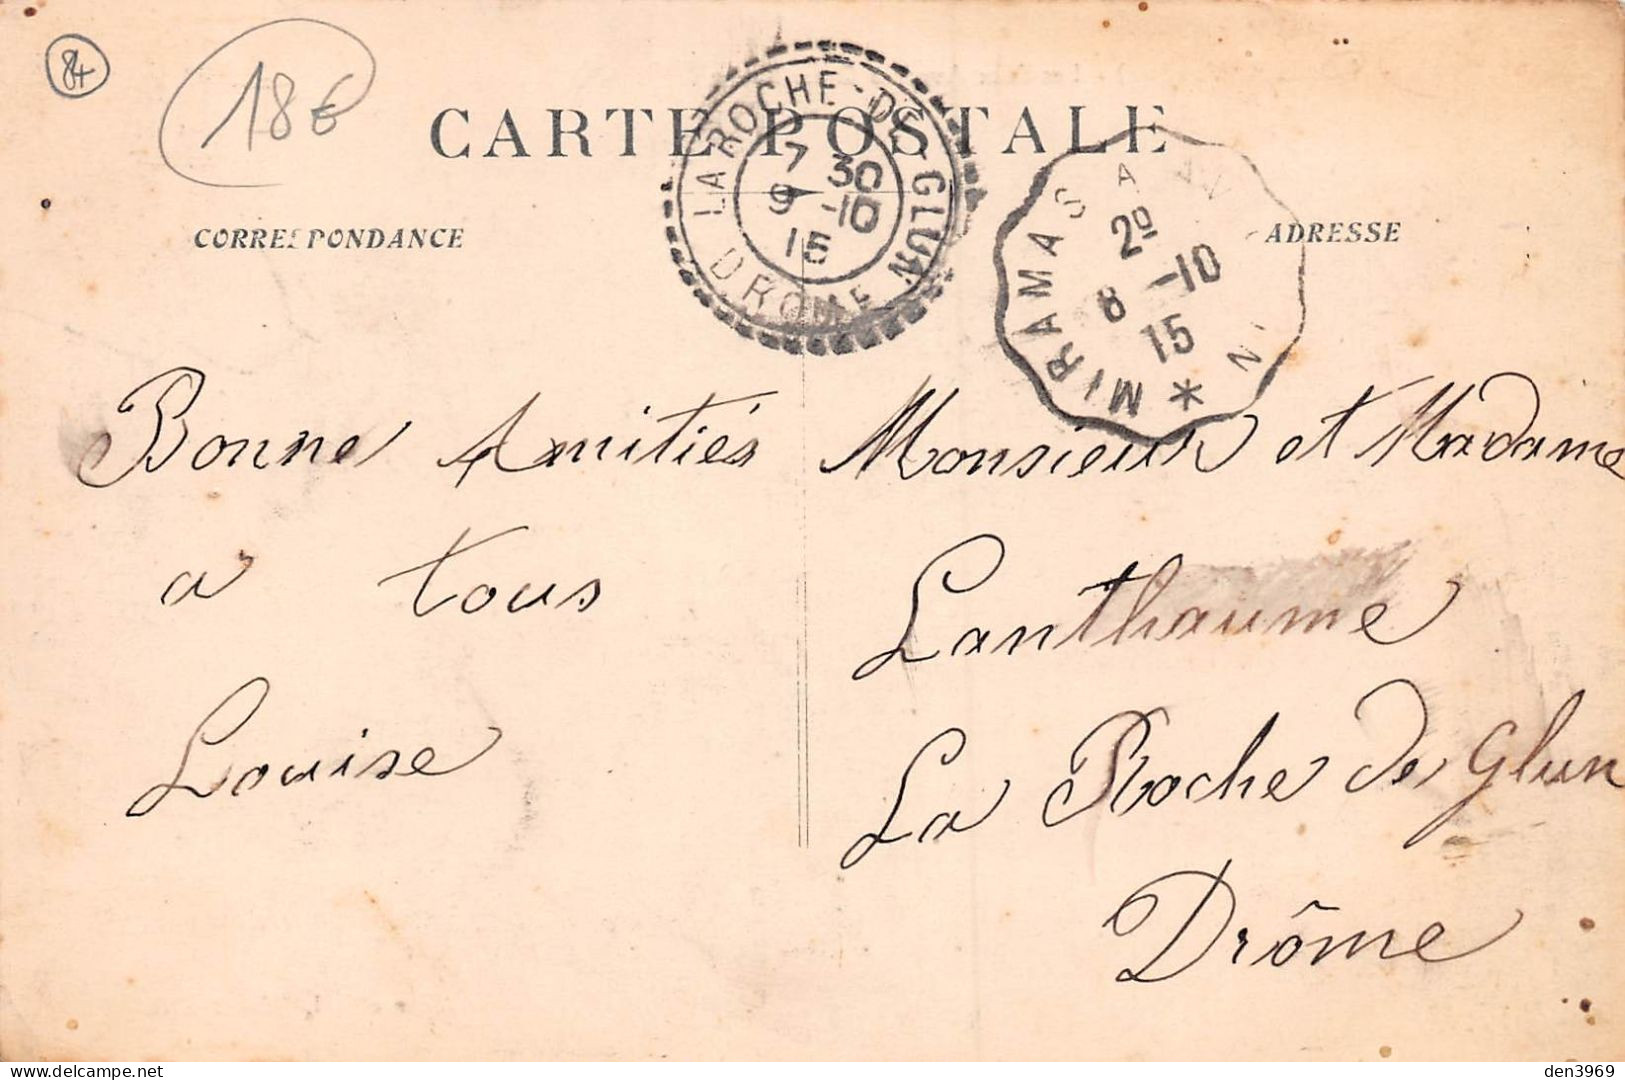 84
18€
CARTE POSTALE
LA ROCHE-DE-GLUN
DROME
7 30
9 -10
15
MIRAMAS A
2º
8 -10
15
*
CORRESPONDANCE
ADRESSE
Bonne Amitiés
a tous
Louise
Monsieur et Madame
Lanthaume
La Roche de Glun
Drôme
delcampe.net
den3969